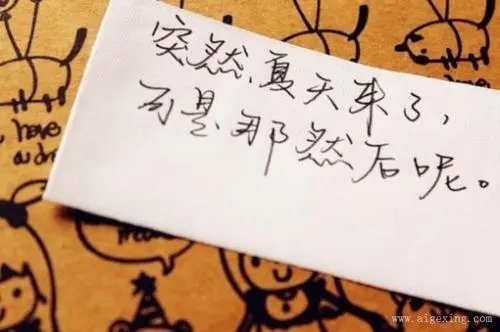 突然、夏天来了，
可是、那然后呢。
have
www.aigexing.com